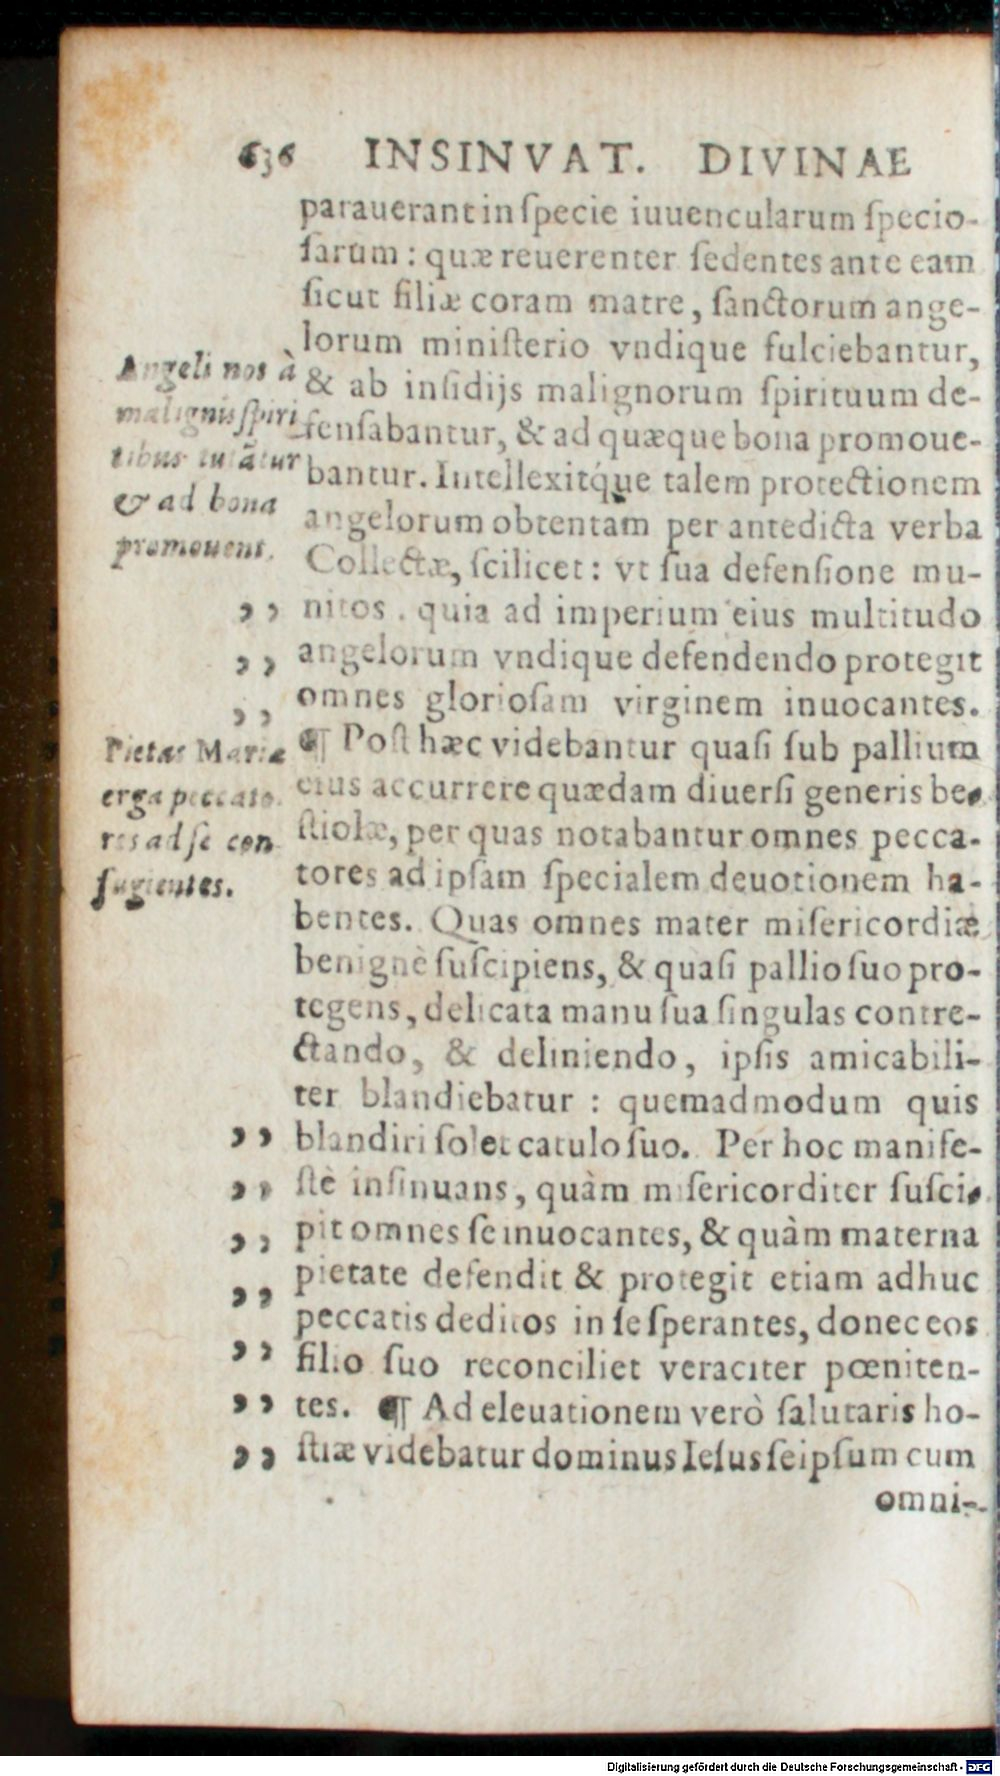 636 INSINVAT. DIVINAE
parauerant in ſpecie iuuencularum ſpecio-
ſarum : quæ reuerenter ſedentes ante eam
ſicut filiæ coram matre, ſanctorum ange-
lorum miniſterio vndique fulciebantur,
& ab inſidijs malignorum ſpirituum de-
fenſabantur, & ad quæque bona promoue-
bantur. Intellexitq́ue talem protectionem
angelorum obtentam per antedicta verba
Collectæ, ſcilicet : vt ſua defenſione mu-
nitos . quia ad imperium eius multitudo
angelorum vndique defendendo protegit
omnes glorioſam virginem inuocantes.
¶ Poſt hæc videbantur quaſi ſub pallium
eius accurrere quædam diuerſi generis be-
ſtiolæ, per quas notabantur omnes pecca-
tores ad ipſam ſpecialem deuotionem ha-
bentes. Quas omnes mater miſericordiæ
benignè ſuſcipiens, & quaſi pallio ſuo pro-
tegens, delicata manu ſua ſingulas contre-
ctando, & deliniendo, ipſis amicabili-
ter blandiebatur : quemadmodum quis
blandiri ſolet catulo ſuo. Per hoc manife-
ſtè inſinuans, quàm miſericorditer ſuſci-
pit omnes ſe inuocantes, & quàm materna
pietate defendit & protegit etiam adhuc
peccatis deditos in ſe ſperantes, donec eos
filio ſuo reconciliet veraciter pœniten-
tes. ¶ Ad eleuationem verò ſalutaris ho-
ſtiæ videbatur dominus Ieſus ſeipſum cum
omni-
Angeli nos à
malignis ſpiri
tibus tutãtur
& ad bona
promouent.
,,
,,
,,
Pietas Mariæ
erga peccato-
res ad ſe con
fugientes.
,,
,,
,,
,,
,,
,,
,,
Digitalisierung gefördert durch die Deutsche Forschungsgemeinschaft - DFG